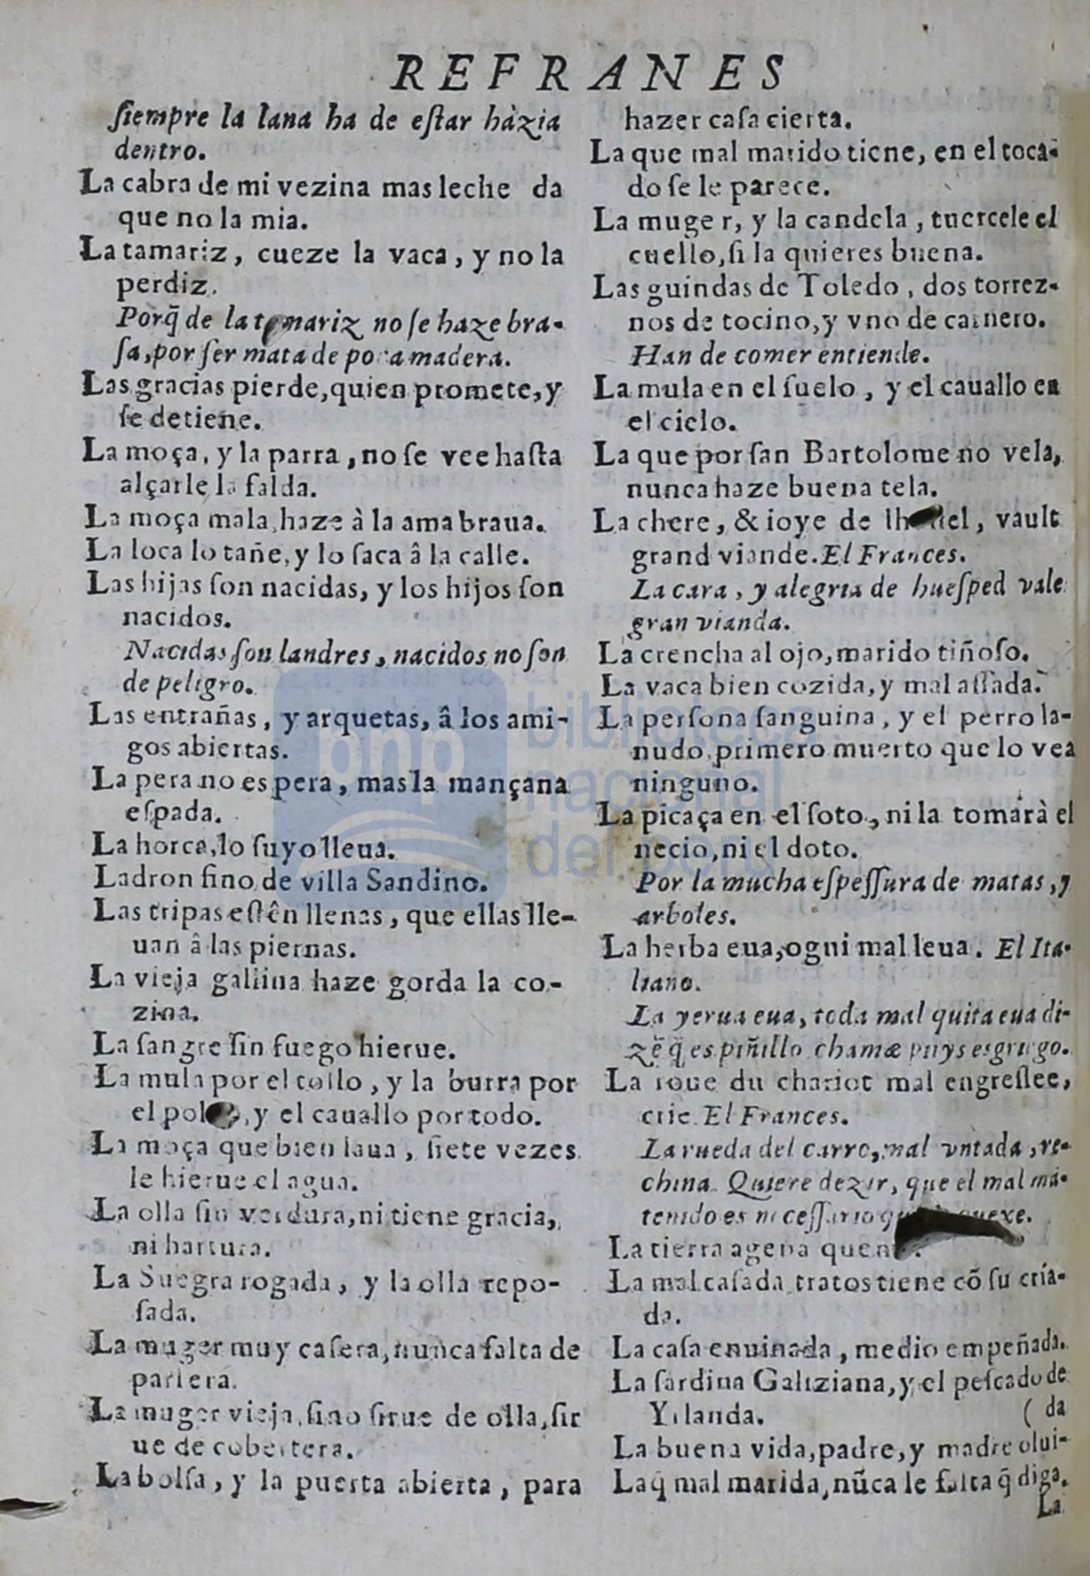 REFRANES
siempre la lana ha de estar hàzia
dentro.
La cabra de mi vezina mas leche da
que no la mia.
La tamariz, cueze la vaca, y no la
perdiz.
Porq̃ de la tamariz no se haze bra-
sa, por ser mata de poca madera.
Las gracias pierde, quien promete, y
se detiene.
La moça, y la parra, no se vee hasta
alçarle la falda.
La moça mala, haze à la ama braua.
La loca lo tañe, y lo saca â la calle.
Las hijas son nacidas, y los hijos son
nacidos.
Nacidas son landres, nacidos no son
de peligro.
Las entrañas, y arquetas, â los ami-
gos abiertas.
La pera no espera, mas la mançana
espada.
La horca, lo suyo lleua.
Ladron fino de villa Sandino.
Las tripas estên llenas, que ellas lle-
uan â las piernas.
La vieja gallina haze gorda la co-
zina.
La sangre sin fuego hierue.
La mula por el collo, y la burra por
el pol, y el cauallo por todo.
La moça que bien laua, siete vezes
le hierue el agua.
La olla sin verdura, ni tiene gracia,
ni hartura.
La Suegra rogada, y la olla repo-
sada.
La muger muy casera, nunca falta de
parlera.
La muger vieja, sino sirue de olla, sir
ue de cobertera.
La bolsa, y la puerta abierta, para
hazer casa cierta.
La que mal marido tiene, en el toca-
do se le parece.
La muger, y la candela, tuercele el
cuello, si la quieres buena.
Las guindas de Toledo, dos torrez-
nos de tocino, y vno de carnero.
Han de comer entiende.
La mula en el suelo, y el cauallo en
el cielo.
La que por san Bartolome no vela,
nunca haze buena tela.
La chere, & ioye de lhostel, vault
grand viande. El Frances.
La cara, y alegria de huesped vale
gran vianda.
La crencha al ojo, marido tiñoso.
La vaca bien cozida, y mal assada.
La persona sanguina, y el perro la-
nudo, primero muerto que lo vea
ninguno.
La picaça en el soto, ni la tomarà el
necio, ni el doto.
Por la mucha espessura de matas, y
arboles.
La herba eua, ogni mal leua. El Ita-
liano.
La yerua eua, toda mal quita eua di-
zẽ q̃ es piñillo chamæ pitys es griego.
La roue du chariot mal engressee,
crie. El Frances.
La rueda del carro, mal vntada, re-
china. Quiere dezir, que el mal mã-
tenido es necessario quexe.
La tierra agena
La mal casada tratos tiene cõ su cria-
da.
La casa enuinada, medio empeñada.
La sardina Galiziana, y el pescado de
Yrlanda. ( da
La buena vida, padre, y madre olui-
La q̃ mal marida, nũca le falta q̃ diga.
La
biblioteca
nacional
del perú
bnp